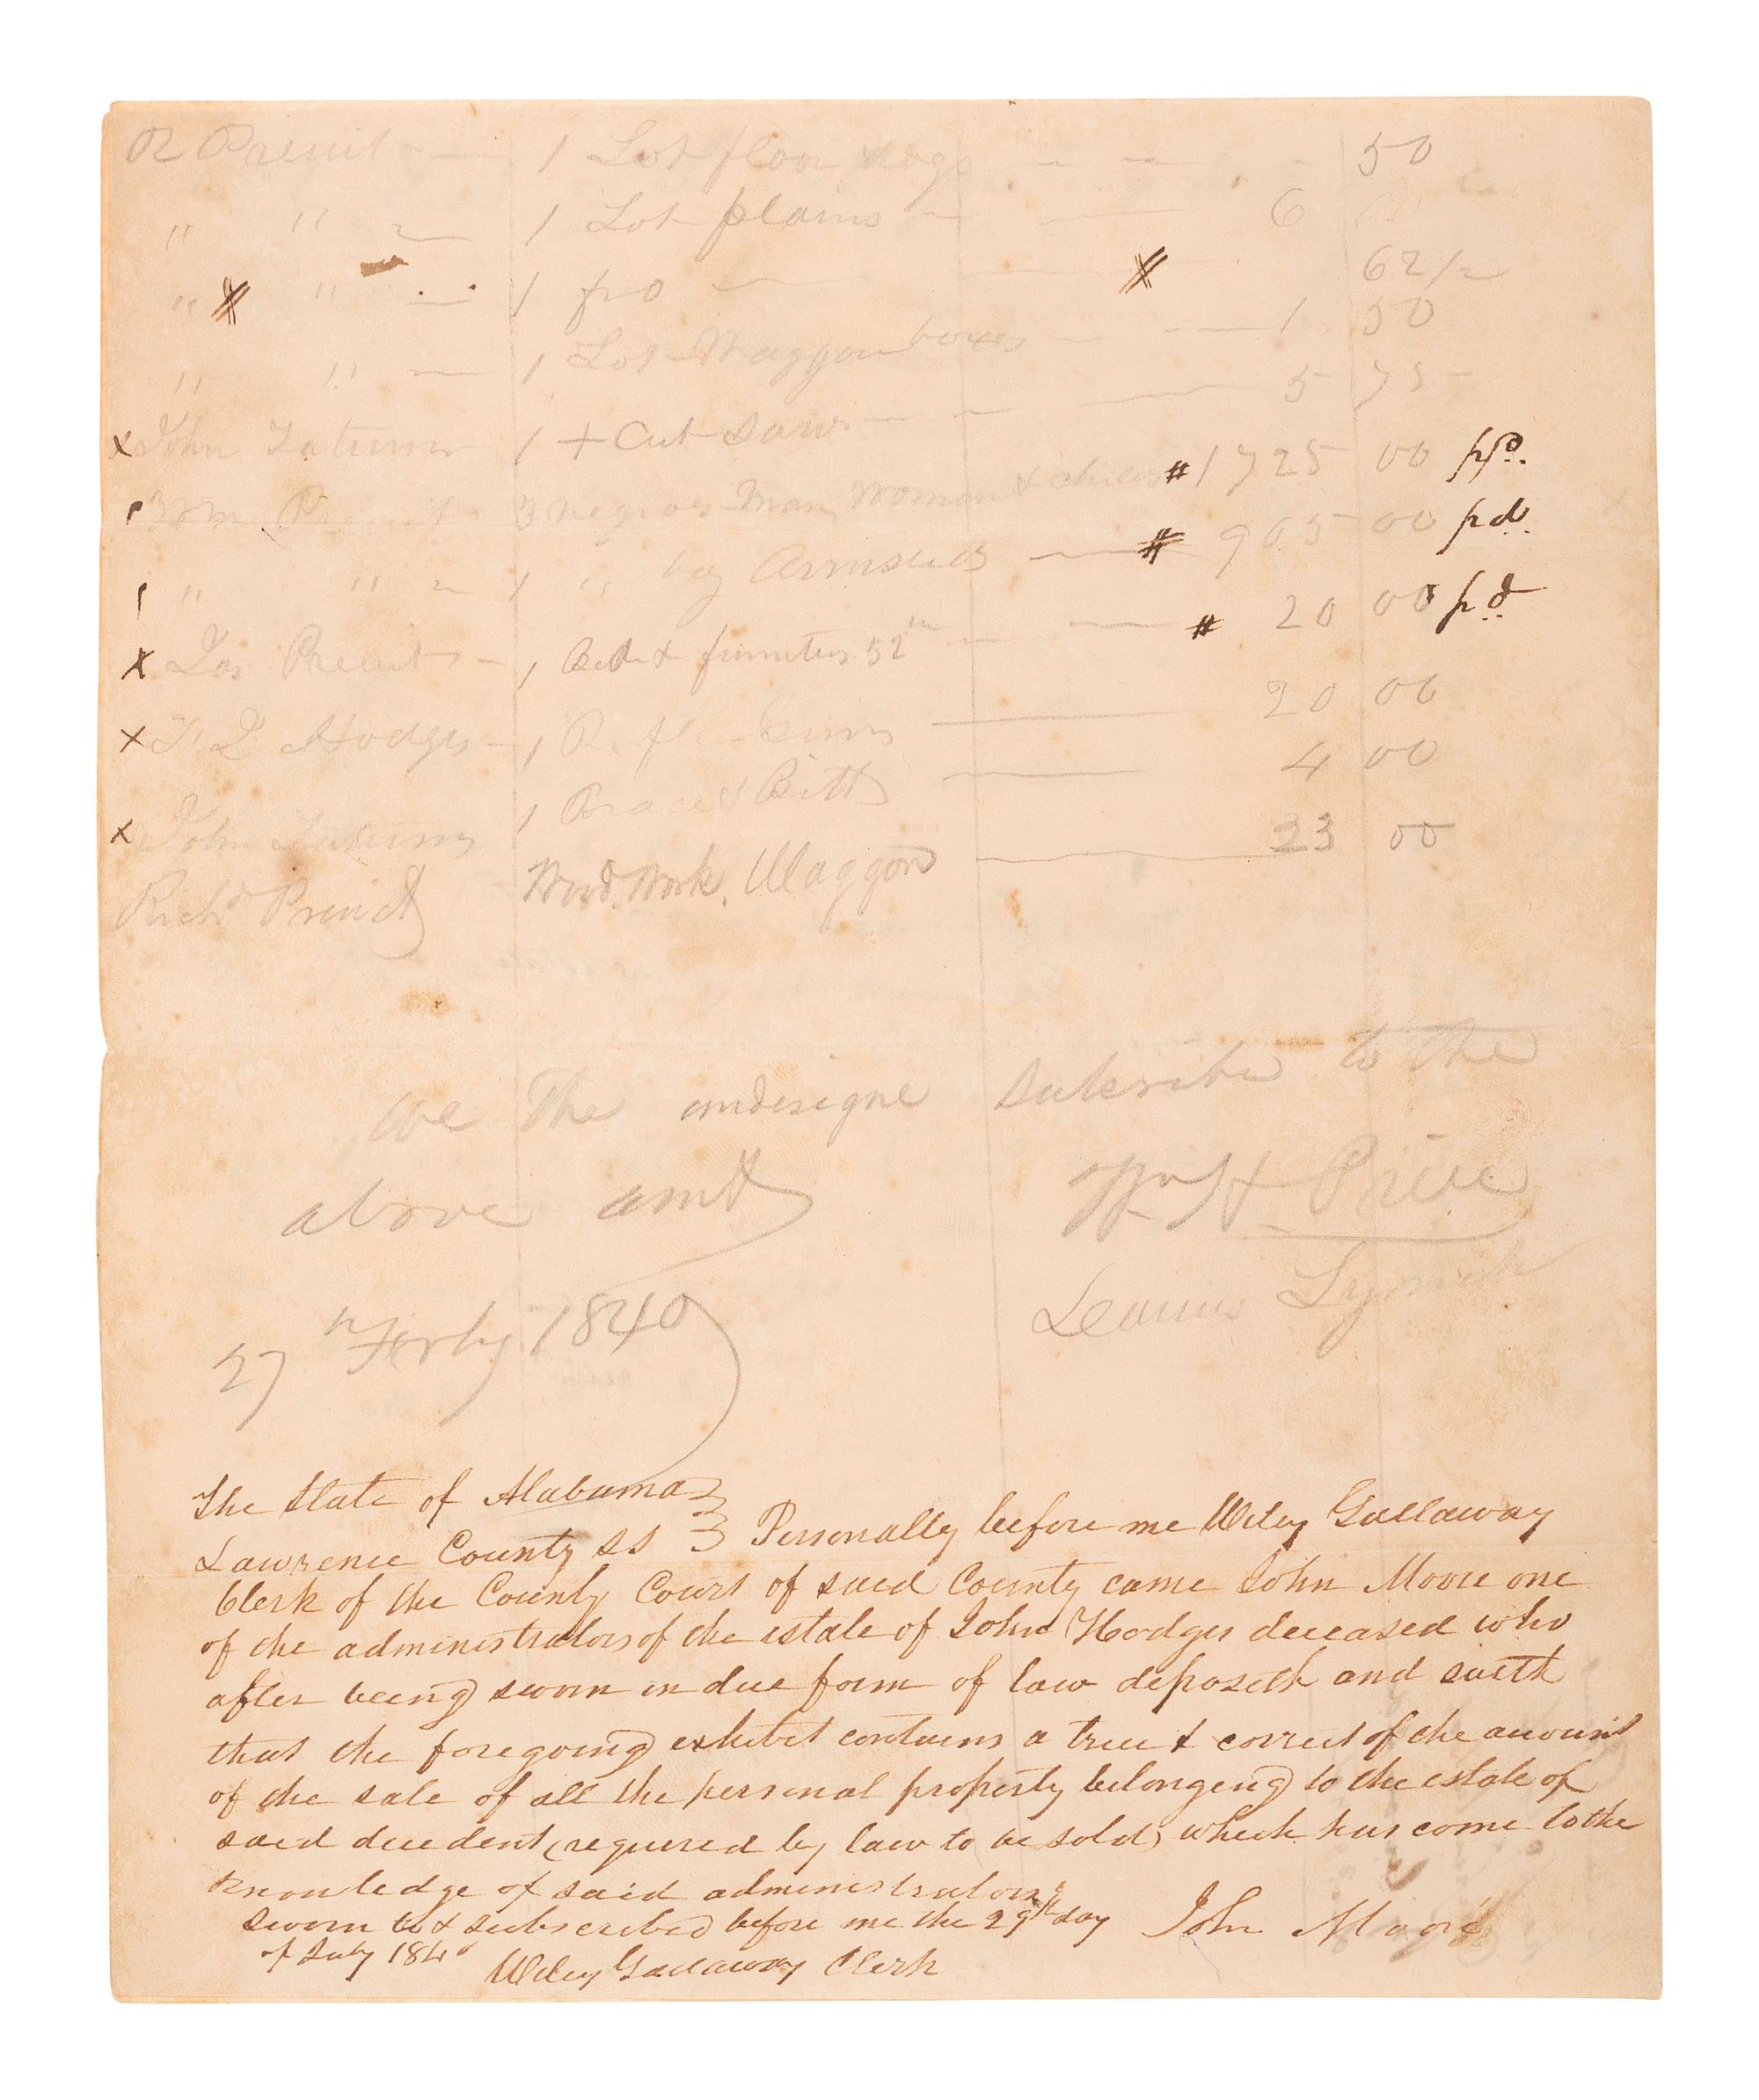 R Preuit — 1 Lot floor dogs — — 50
" " — 1 Lot plains — — 6
" " — 1 fro — — 62 1/2
" " — 1 Lot Waggon boxes — — 1 50
x John Tatum 1 + Cut Saw — — 5 75
Wm Preuit 3 negroes Man Woman & child # 1725 00 pd.
" " — 1 " boy Armsted — # 905 00 pd.
x Jas Preuit — 1 Bed & furniture 52 — # 20 00 pd
x Hodges — 1 Rifle Gun — 20 00
x John Tatum 1 Brace & Bitts — 4 00
Richd Preuit Wood Work. Waggon — 23 00
we The undersigne Subsribe to the
above amt
Wm H Price
27 1840
The State of Alabama
Lawrence County SS } Personally before me Wiley Gallaway
Clerk of the County Court of said County came John Moore one
of the administrators of the estate of John Hodges deceased who
after being sworn in due form of law deposeth and saith
that the foregoing exhibit contains a true & correct of the amount
of the sale of all the personal property belonging to the estate of
said decedent (required by law to be sold) which has come to the
knowledge of said administrators
Sworn to & subscribed before me the 29th day John Moore
of July 1840 Wiley Gallaway Clerk